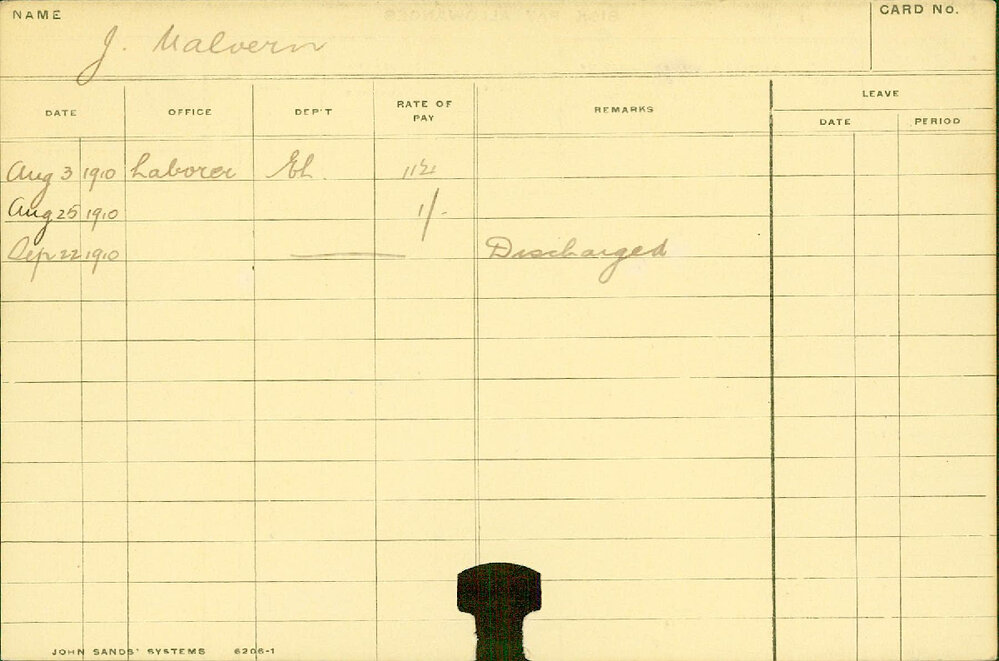 NAME J. Malvern CARD No.
DATE OFFICE DEP'T RATE OF PAY REMARKS LEAVE
DATE PERIOD
Aug 3 1910 Laborer El.
Aug 25 1910 1/-
Sep 22 1910 Discharged
JOHN SANDS' SYSTEMS 6206-1